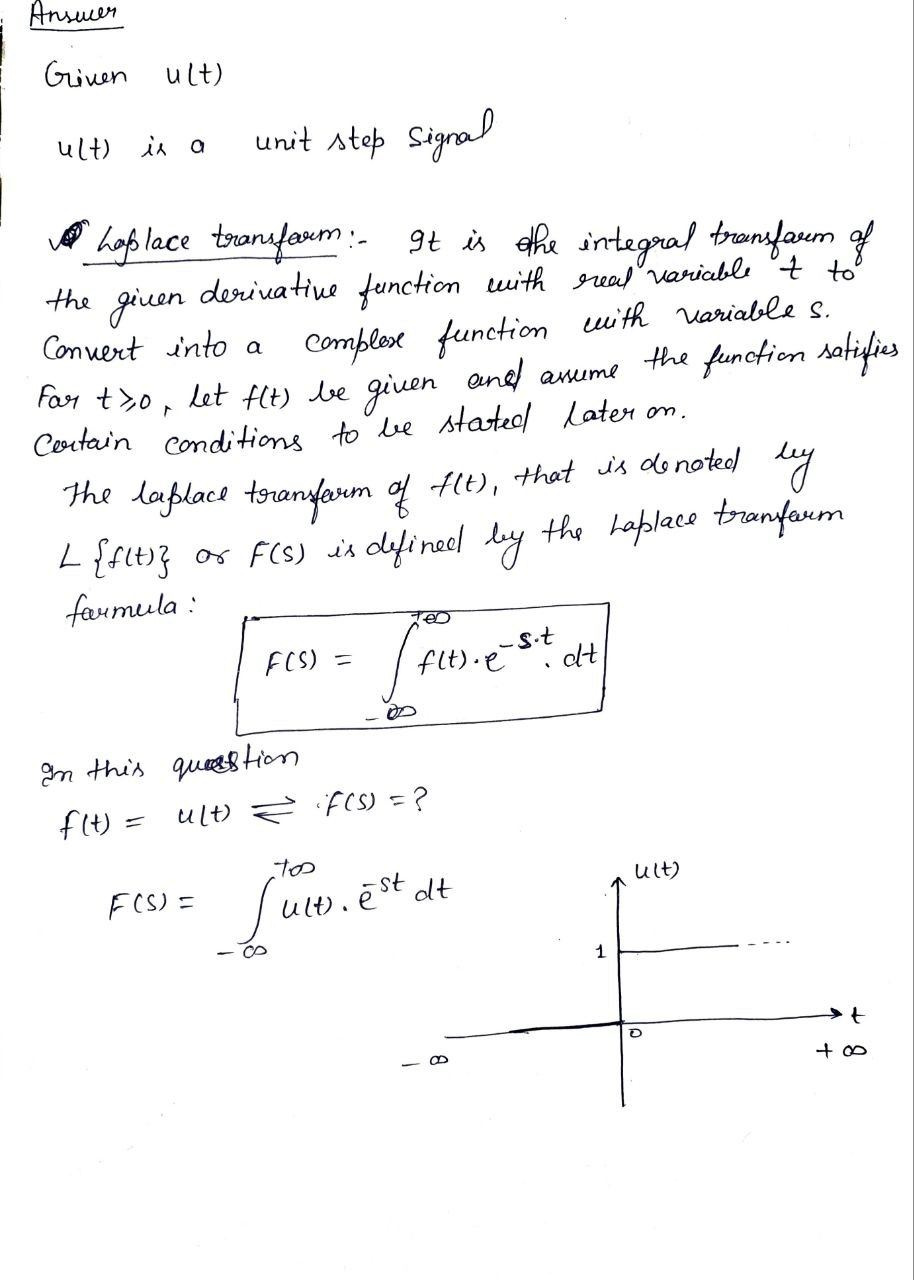 Answer
Given u(t)
u(t) is a unit step signal
Laplace transform :- It is the integral transform of
the given derivative function with real variable t to
Convert into a complex function with variable s.
For t≥0, let f(t) be given and assume the function satisfies
Certain conditions to be stated later on.
The laplace transform of f(t), that is denoted by
L {f(t)} or F(S) is defined by the Laplace transform
formula :
F(S) = ∫_{-∞}^{+∞} f(t).e^{-s.t}. dt
In this question
f(t) = u(t) ⇌ F(S) = ?
F(S) = ∫_{-∞}^{+∞} u(t). e^{-st} dt
u(t)
1
t
0
-∞
+∞